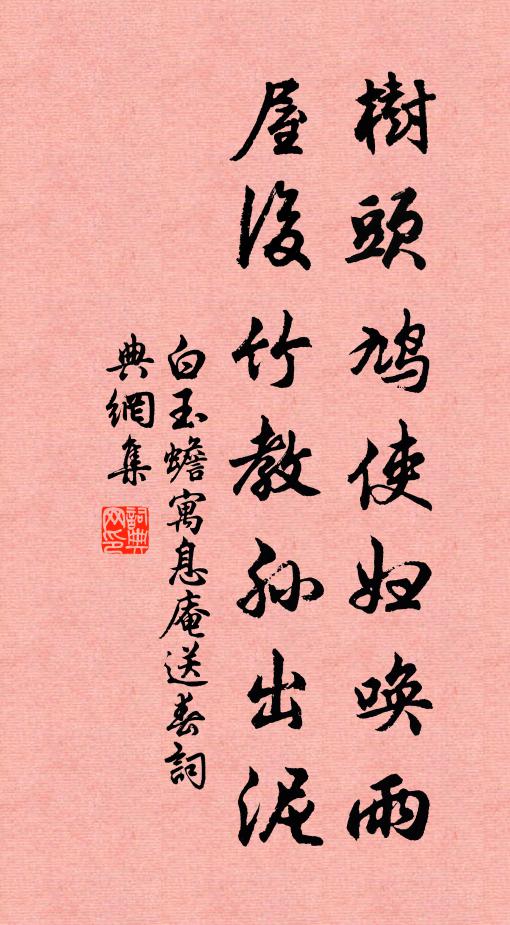 樹頭鳩使妇喚雨
屋後竹教孙出泥
白玉蟾寓息庵送春詞
典網集
詞典網印